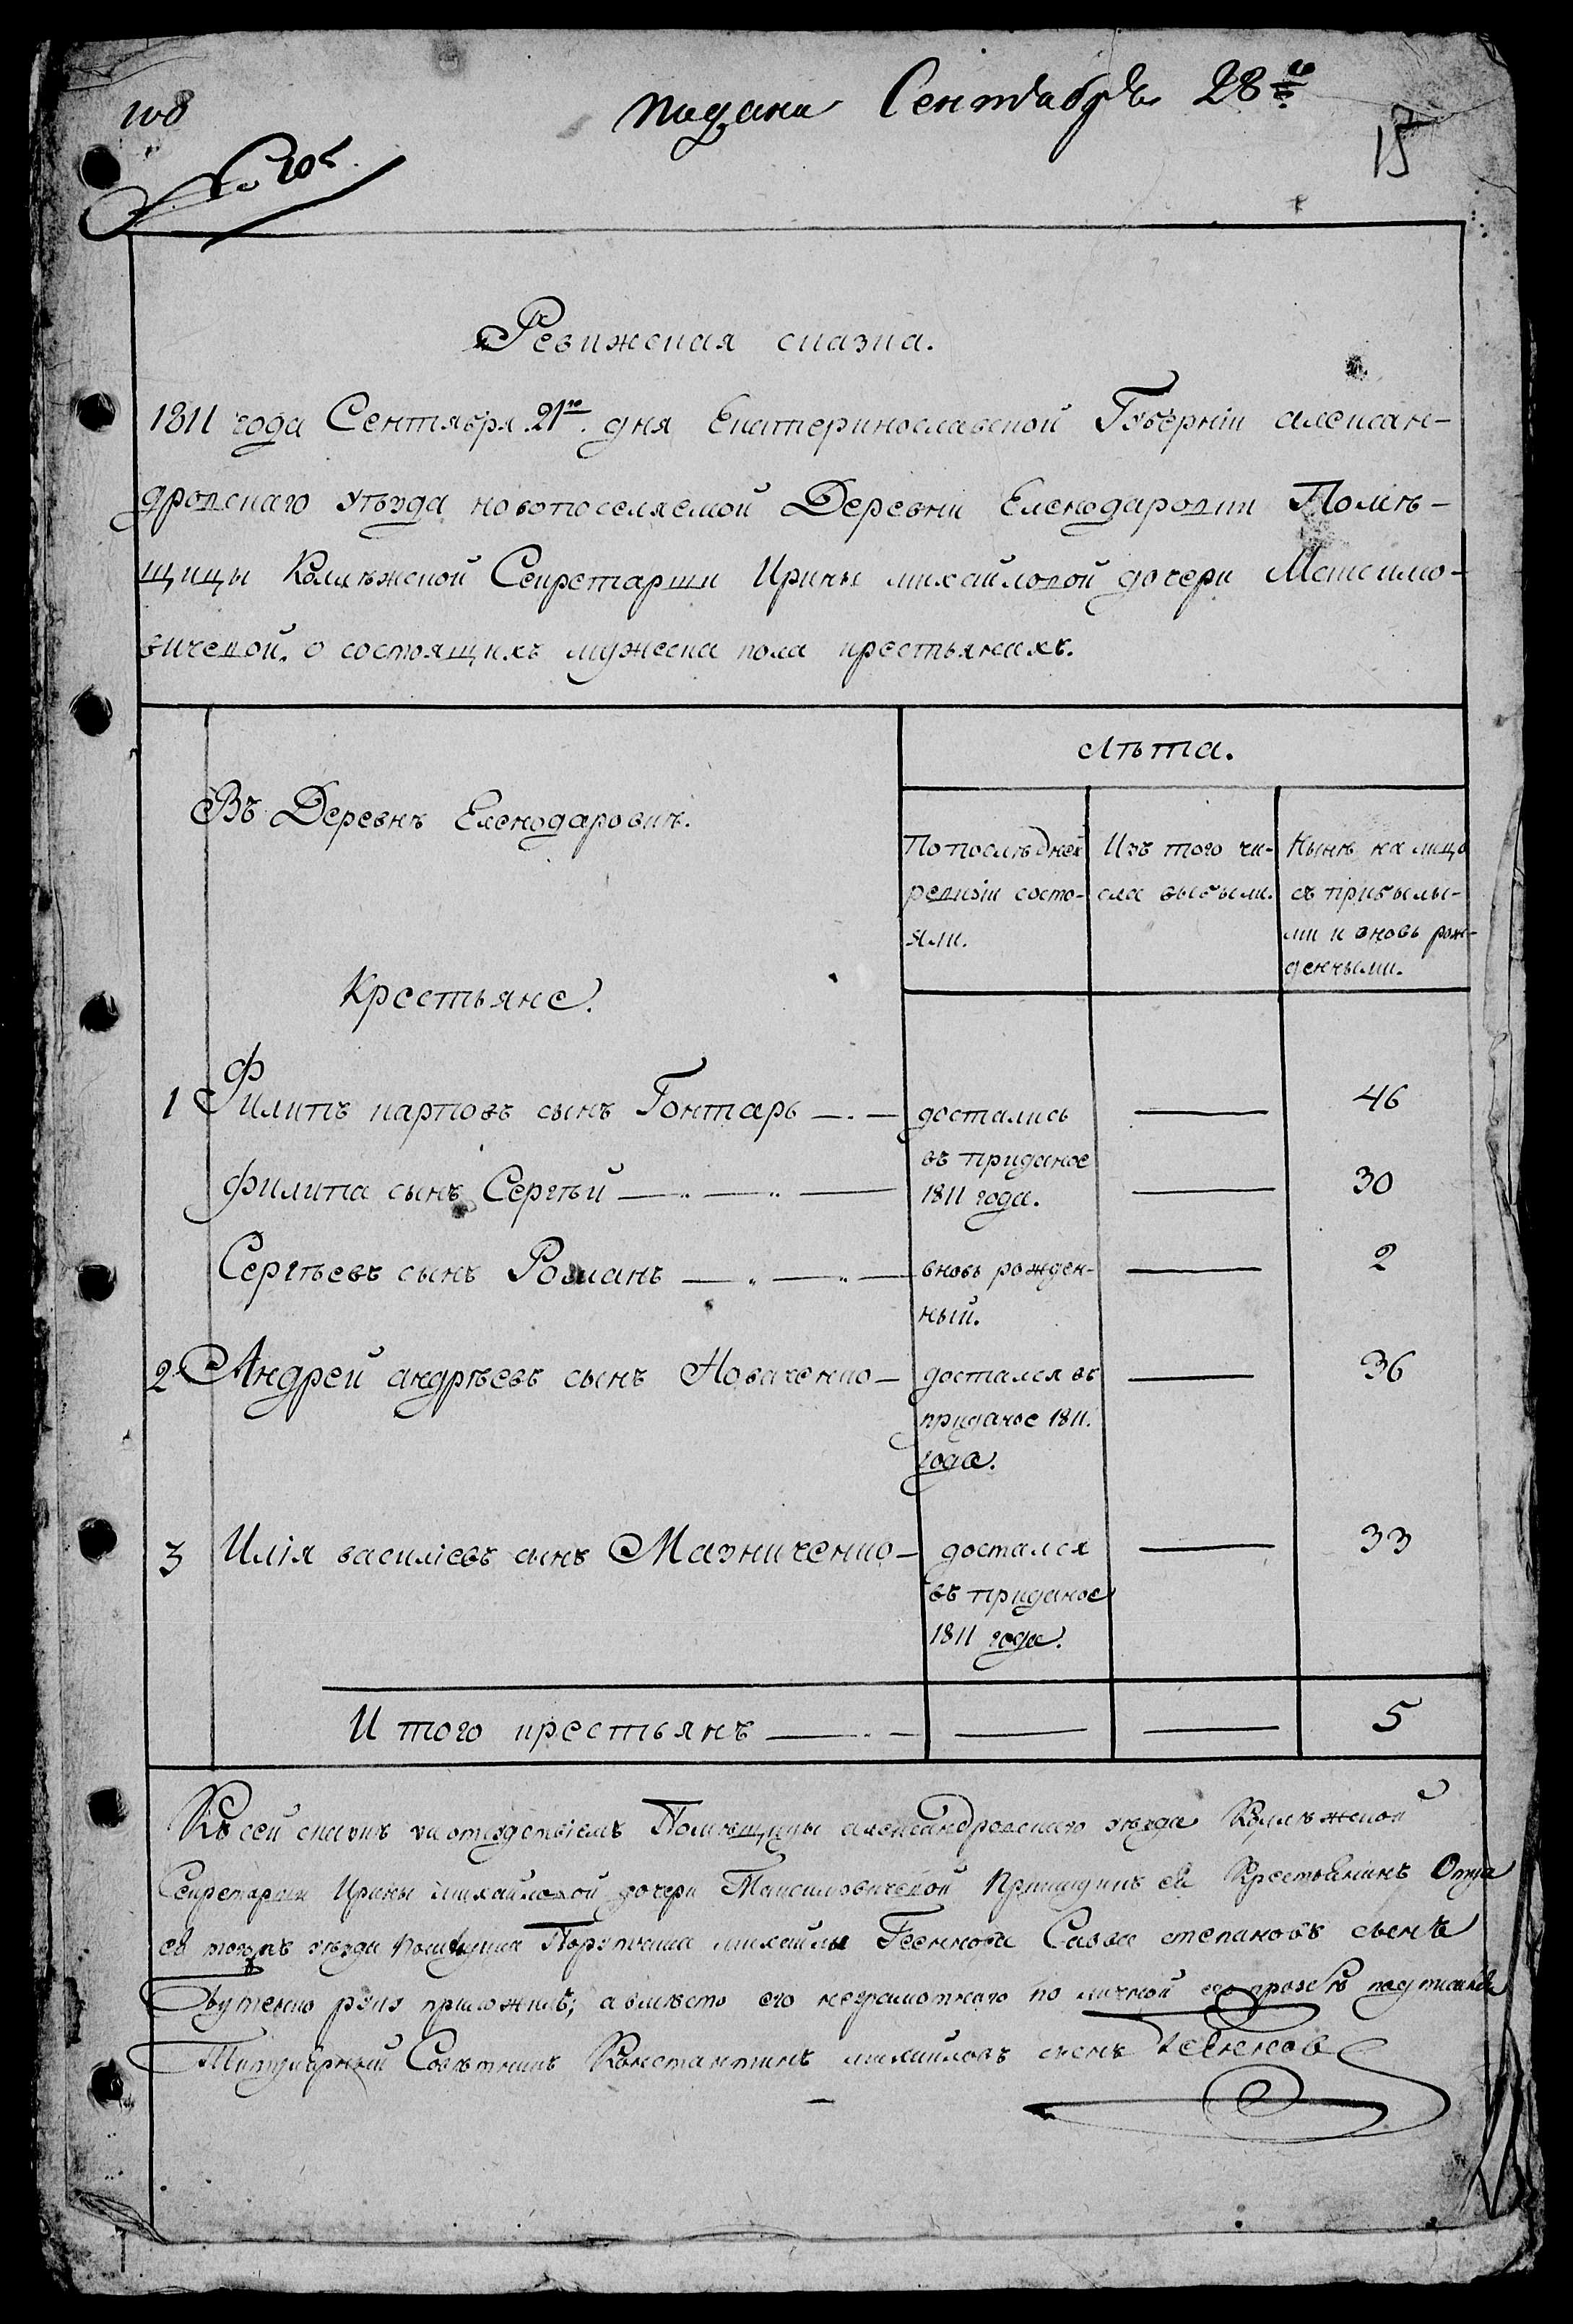 подана Сентября 28го
15
№ 20й.
Ревижская сказка.
1811 года Сентября 21го дня Екатеринославской Губернiи алексан-
дровскаго уѣзда новопоселяемой Деревни Еленодаровки Помѣ-
щицы Коллѣжской Секретарши Ирины михайловой дочери Максимо-
вичевой. о состоящихъ мужеска пола крестьянахъ.
Лѣта.
Въ Деревнѣ Еленодаровкѣ.
По послѣдней ревизiи состо-яли.
Изъ того чи-сла выбыли.
Нынѣ на лицо съ прибылы-ми и вновь рож-денными.
Крестьяне.
1 Филипъ карповъ сынъ Гонтарь — достались 46
въ приданое
Филипа сынъ Сергѣй — 1811 года. 30
Сергѣевъ сынъ Романъ — вновь рожден- 2
ный.
2 Андрей андрѣевъ сынъ Новаченко — достался въ 36
приданое 1811.
года.
3 Илiя василiевъ сынъ Мазниченко — достался 33
въ приданое
1811 года.
И того крестьянъ — 5
Къ сей сказкѣ Помѣщицы александровскаго уѣзда Коллѣжской
Секретарши Ирины михайловой дочери Максимовичевой Прикащикъ ея Крестьянинъ Отца
ея уѣзда помѣщика Порутчика михайлы Савва степановъ сынъ
руку приложилъ; а вмѣсто его неграмотнаго по личной его прозбѣ подписался
Титулярный Совѣтникъ Константинъ михайловъ сынъ